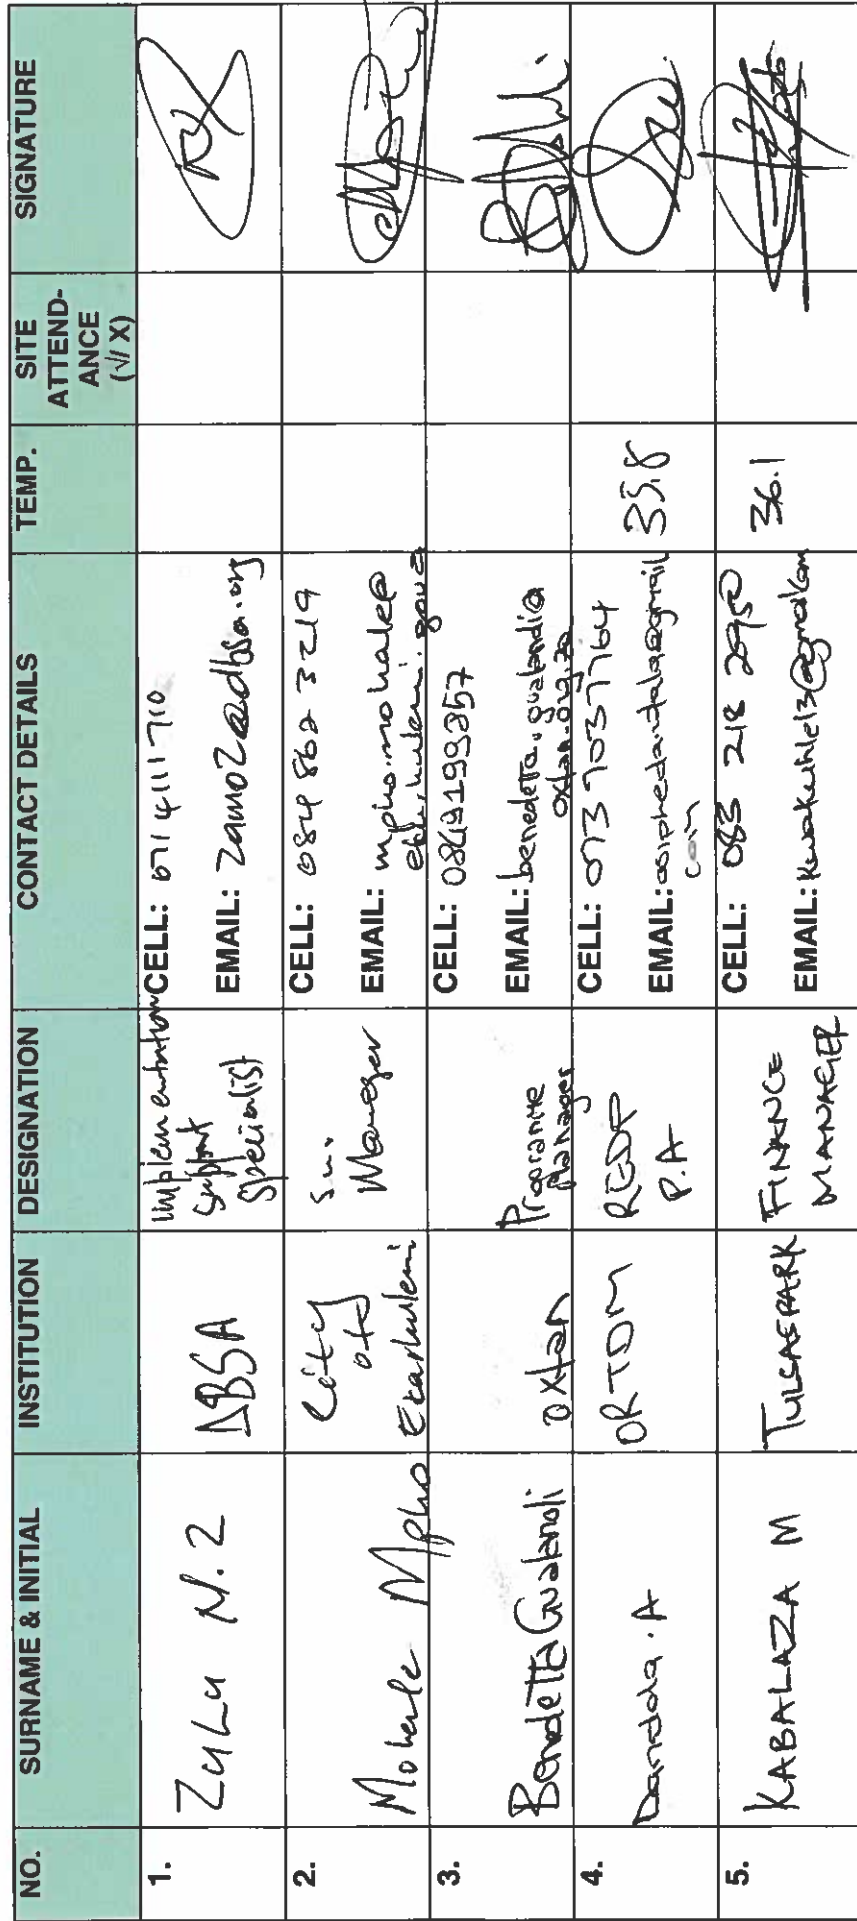 NO. SURNAME & INITIAL INSTITUTION DESIGNATION CONTACT DETAILS TEMP. SITE ATTEND-ANCE (√/ X) SIGNATURE
1. ZULU N.Z DBSA Implementation Support Specialist CELL: 0714111710
EMAIL: ZamoZ@dbsa.org
2. Mohale Mpho City of Ekurhuleni Snr. Manager CELL: 084 862 3219
EMAIL: mpho.mohale@
3. Benedetta Gualandi oxfan Programme Manager CELL:
EMAIL: benedetta.gualandi@
oxfan.org.za
4. A ORTDM P.A CELL: 073 7037764
EMAIL: 35.8
com
5. KABALAZA M FINANCE MANAGER CELL: 083 218 2950
EMAIL: 36.1